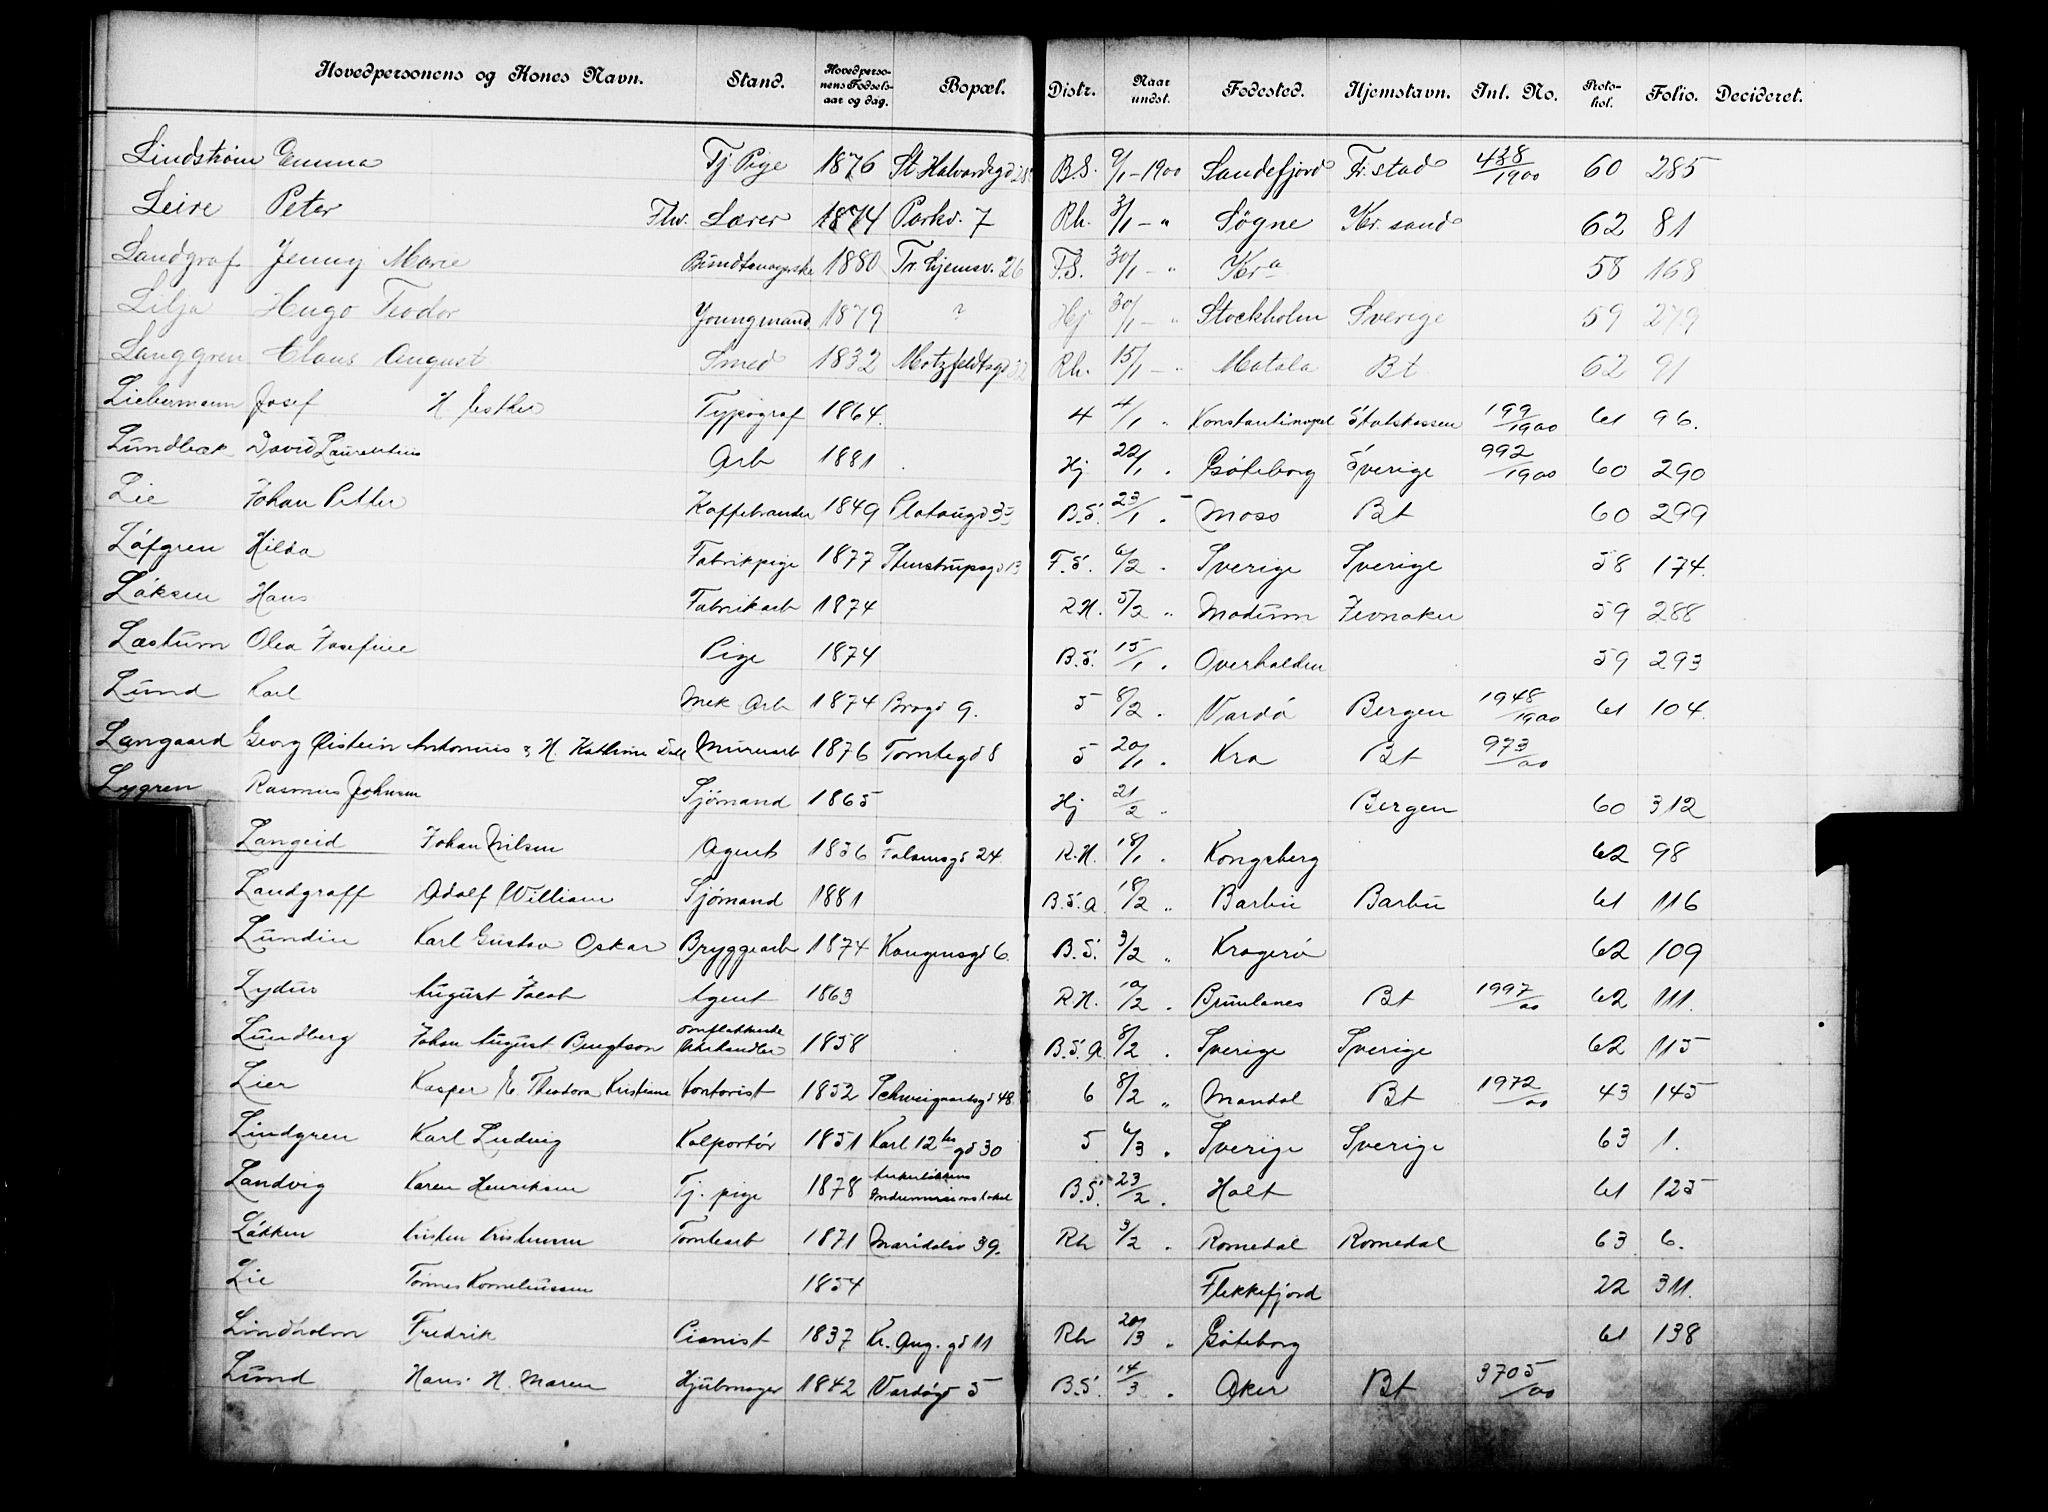 Hovedpersonens og Kones Navn. Stand. Hovedpersonens Fødselsaar og dag. Bopæl. Distr. Naar undst. Fødested. Hjemstavn. Inl. No. Protokol. Folio. Decideret.
Lindstrøm Emma Tj Pige 1876 St. Halvardsgd 28 B.S. 9/1-1900 Sandefjord Fr.stad 438/1900 60 285
Leire Peter Fhv. Lærer 1874 Parkv. 7 Rh. 3/1 - " Søgne Kr. sand 62 81
Landgraf Jenny Marie 1880 Tr.hjemsv. 26 F.S. 30/1 - " Kra 58 168
Lilja Hugo Teodor Youngmand 1879 ? Hj 30/1 - " Stockholm Sverige 59 279
Langgren Claus August Smed 1832 Motzfeldtsgd 32 Rh. 15/1 - " Motala Bt 62 91
Liebermann Josef H. Esther Typograf 1864. 4 4/1 " Konstantinopel Statskassen 199/1900 61 96.
Lundbæk David Laurentius Arb 1881 Hj 22/1 . Gøteborg Sverige 992/1900 60 290
Lie Johan Petter Kaffebrander 1849 Platougd 33 B.S. 23/1 . Moss Bt 60 299
Løfgren Hilda Fabrikpige 1877 Stenstrupsgd 13 F.S. 6/2 . Sverige Sverige 58 174.
Løksen Hans Fabrikarb 1874 R.H. 5/2 " Modum Jevnaker 59 288
Læstum Olea Josefine Pige 1874 B.S. 15/1 . Overhalden 59 293
Lund Karl Mek Arb 1874 Brogd 9. 5 8/2 . Vardø Bergen 1948/1900 61 104.
Langaard Georg Øistein Antonius & H. Kathrine Murerarb 1876 Tomtegd 8 5 20/1 . Kra Bt 973/00
Lygren Rasmus Johnsen Sjømand 1865 Hj 21/2 . Bergen 60 312
Langeid Johan Nilsen Agent 1836 Falsensgd 24. R.H. 18/1 . Kongsberg 62 98
Landgraff Adolf William Sjømand 1881 B.S.A. 18/2 " Barbu Barbu 61 116
Lundin Karl Gustav Oskar Bryggearb 1874 Kongensgd 6. B.S. 3/2 " Kragerø 62 109
August Jacob Agent 1863 R.H. 10/2 . Brunlanes Bt 1997/00 62 111.
Lundberg Johan August Bengtson omflakkende 1858 B.S.A. 8/2 . Sverige Sverige 62 115
Lier Kasper H. Theodora Kristiane Kontorist 1852 Schweigaardsgd 48. 6 8/2 " Mandal Bt 1972/00 43 145
Lindgren Karl Ludvig Kolportør 1851 Karl 12tes gd 30 5 6/3 . Sverige Sverige 63 1.
Landvig Karen Henriksen Tj. pige 1878 Ankerløkkens Indremissionslokal B.S. 23/2 . Holt 61 125
Løkken Kristen Kristensen Tomtearb 1871 Maridalsv 39. Rh 3/2 . Romedal Romedal 63 6.
Lie Tønnes Korneliussen 1854 Flekkefjord 22 311.
Lindholm Fredrik Pianist 1837 Kr. Aug. gd 11 Rh 20/3 . Gøteborg 61 138
Lund Hans. H. Maren Hjulmager 1842 Vardøgd 5 B.S. 14/3 . Aker Bt 3705/00